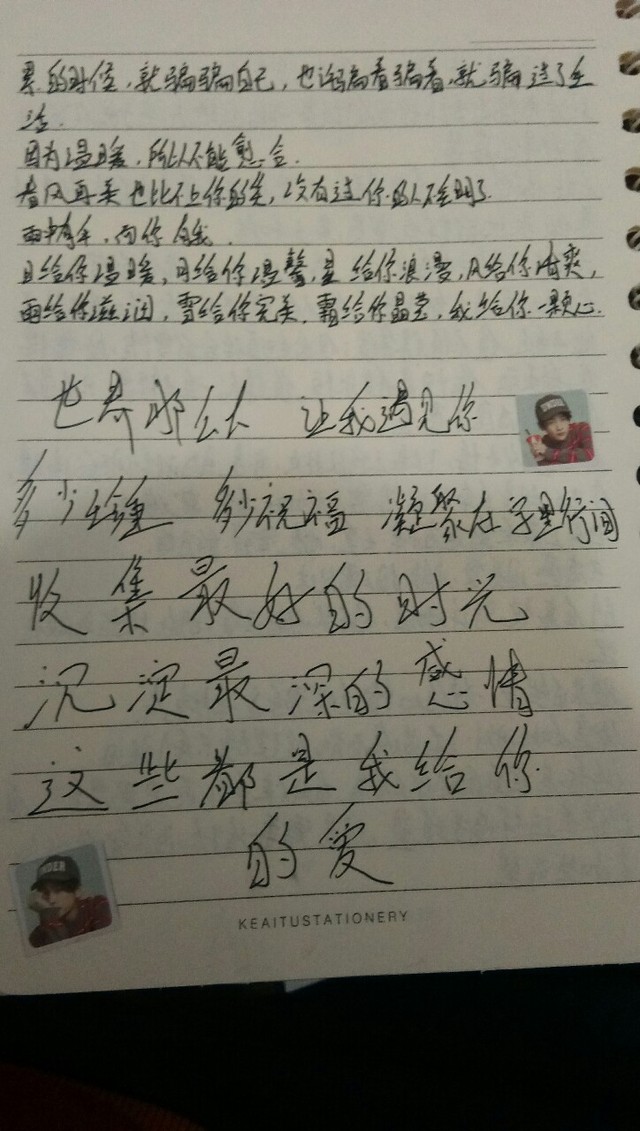 累的时候，就骗骗自己，也许骗着骗着，就骗过了生
活.
因为温暖，所以不能愈合.
春风再柔也比不上你的笑，没有过你的人不会明了.
雨中有伞，而你有我.
日给你温暖，月给你温馨，星给你浪漫，风给你清爽，
雨给你滋润，雪给你完美，霜给你晶莹，我给你一颗心.
世界那么大 让我遇见你
多少钟 多少祝福 凝聚在字里行间
收集最好的时光
沉淀最深的感情
这些都是我给你
的爱
UNDER
KEAITUSTATIONERY